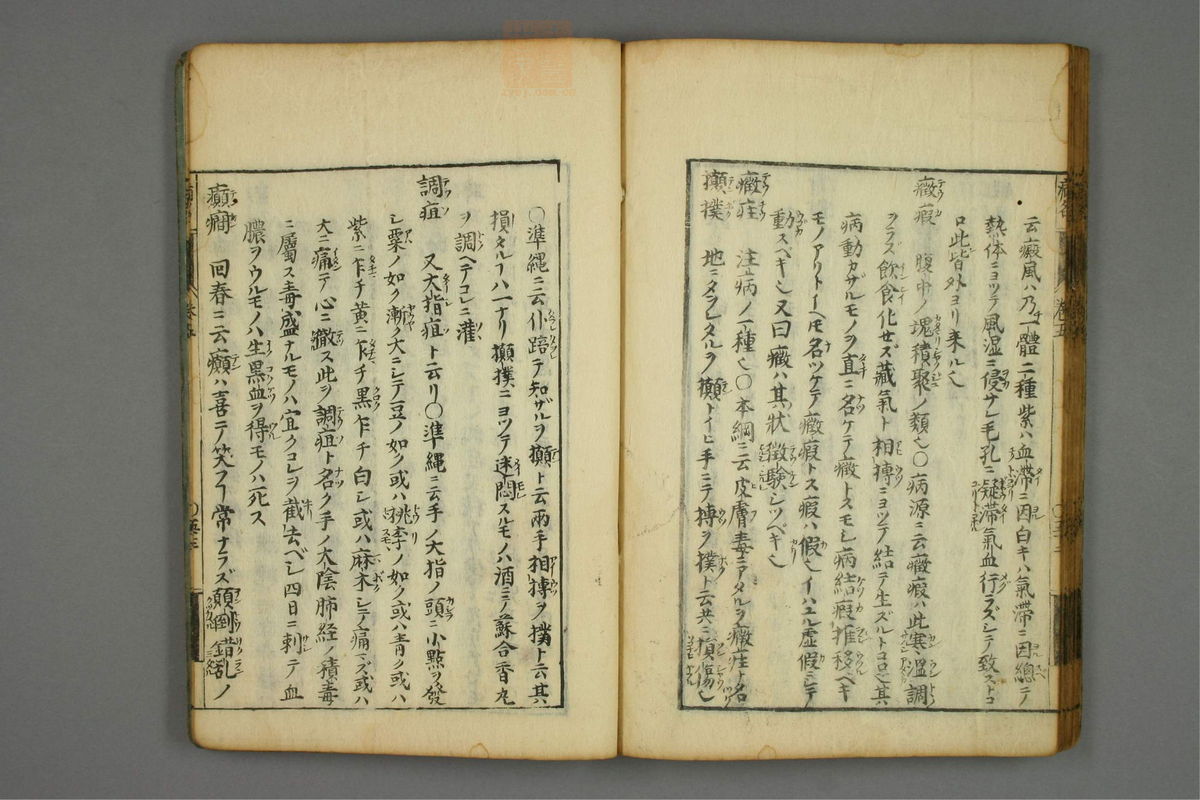 云癜風ハ乃チ一體二種紫ハ血滯ニ因白キハ氣滯ニ因總テ
熱体ニヨツテ風湿ニ侵サレ毛孔ニ凝滯氣血行ラズシテ致ストコ
ロ此皆外ヨリ来ル也
癥瘕 腹中ノ塊積聚ノ類也〇病源ニ云癥瘕ハ此寒温調
ヲラズ飲食化セズ藏氣ト相搏ニヨツテ結テ生ズルトコロ其
病動カザルモノヲ直ニ名ケテ癥トスモシ病結瘕推移ベキ
モノアリトイヘモ名ツケテ癥瘕トス瘕ハ假也イハユル虚假ニシテ
動スベキ也又曰癥ハ其状徴験シツベキ也
癥疰 注病ノ一種也〇本綱ニ云皮膚毒ニアタルヲ癥疰ト名
攧撲 地ニタヲレタルヲ攧トイヒ手ニテ搏ヲ撲ト云共ニ損傷
〇準縄ニ云仆踣テ知ザルヲ攧ト云兩手相搏ヲ撲ト云其
損タルフハ一ナリ攧撲ニヨツテ迷悶スルモノハ酒ニテ蘇合香丸
ヲ調ヘテコレニ灌
調疽 又大指疽ト云リ〇準縄ニ云手ノ大指ノ頭ニ小點ヲ發
シ粟ノ如ク漸ク大ニシテ豆ノ如ク或ハ桃李ノ如ク或ハ青ク或ハ
紫ニ乍チ黄ニ乍チ黒乍チ白シ或ハ麻木シテ痛マズ或ハ
大ニ痛テ心ニ徹ス此ヲ調疽ト名ク手ノ太陰肺経ノ積毒
ニ屬ス毒盛ナルモノハ宜クコレヲ截去ベシ四日ニ刺テ血
膿ヲウルモノハ生黒血ヲ得モノハ死ス
癲癇 回春ニ云癲ハ喜テ笑フ常ナラズ顛倒錯乱ノ